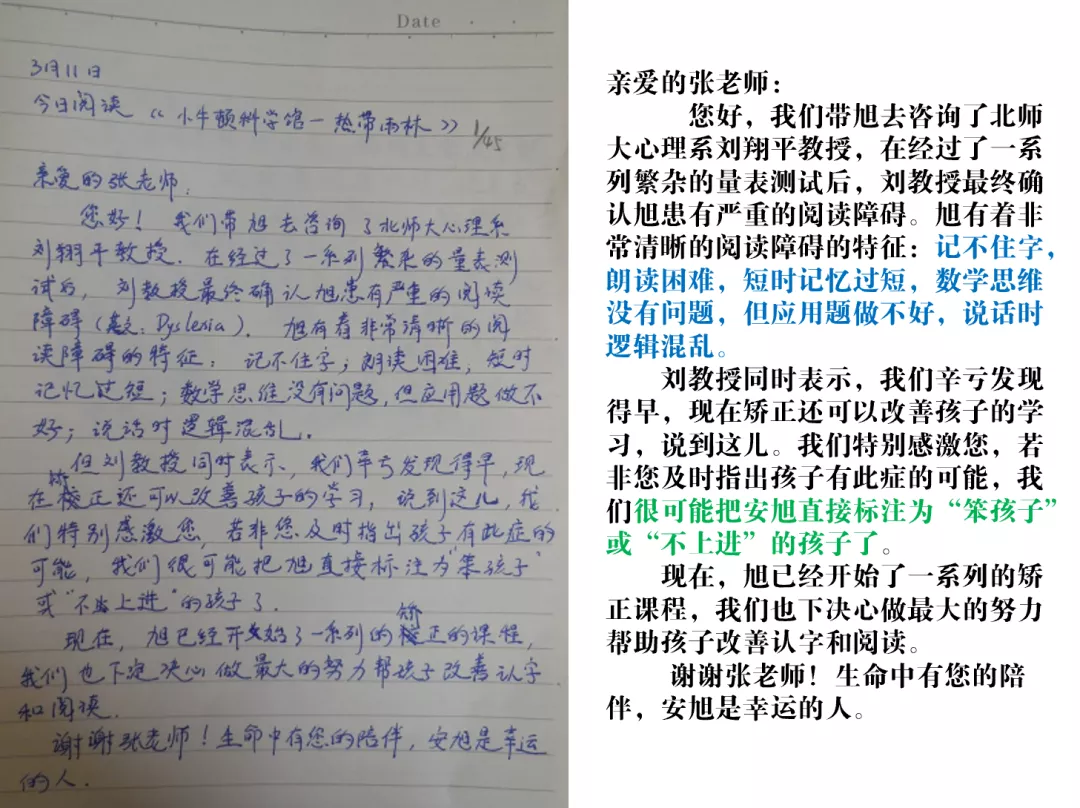 Date
3月11日
今日阅读《小牛顿科学馆-热带雨林》 1/45
亲爱的张老师,
您好! 我们带旭去咨询了北师大心理系
刘翔平教授. 在经过了一系列繁杂的量表测
试后, 刘教授最终确认旭患有严重的阅读
障碍(英文: Dyslexia). 旭有着非常清晰的阅
读障碍的特征: 记不住字; 朗读困难, 短时
记忆过短; 数学思维没有问题, 但应用题做不
好; 说话时逻辑混乱.
但刘教授同时表示, 我们辛亏发现得早, 现
在矫正还可以改善孩子的学习, 说到这儿, 我
们特别感激您, 若非您及时指出孩子有此症的
可能, 我们很可能把旭直接标注为"笨孩子"
或"不上进"的孩子了.
现在, 旭已经开始了一系列的矫正的课程,
我们也下定决心做最大的努力帮孩子改善认字
和阅读.
谢谢张老师! 生命中有您的陪伴, 安旭是幸运
的人.
亲爱的张老师：
您好，我们带旭去咨询了北师
大心理系刘翔平教授，在经过了一系
列繁杂的量表测试后，刘教授最终确
认旭患有严重的阅读障碍。旭有着非
常清晰的阅读障碍的特征：记不住字，
朗读困难，短时记忆过短，数学思维
没有问题，但应用题做不好，说话时
逻辑混乱。
刘教授同时表示，我们辛亏发现
得早，现在矫正还可以改善孩子的学
习，说到这儿。我们特别感激您，若
非您及时指出孩子有此症的可能，我
们很可能把安旭直接标注为“笨孩子”
或“不上进”的孩子了。
现在，旭已经开始了一系列的矫
正课程，我们也下决心做最大的努力
帮助孩子改善认字和阅读。
谢谢张老师！生命中有您的陪
伴，安旭是幸运的人。